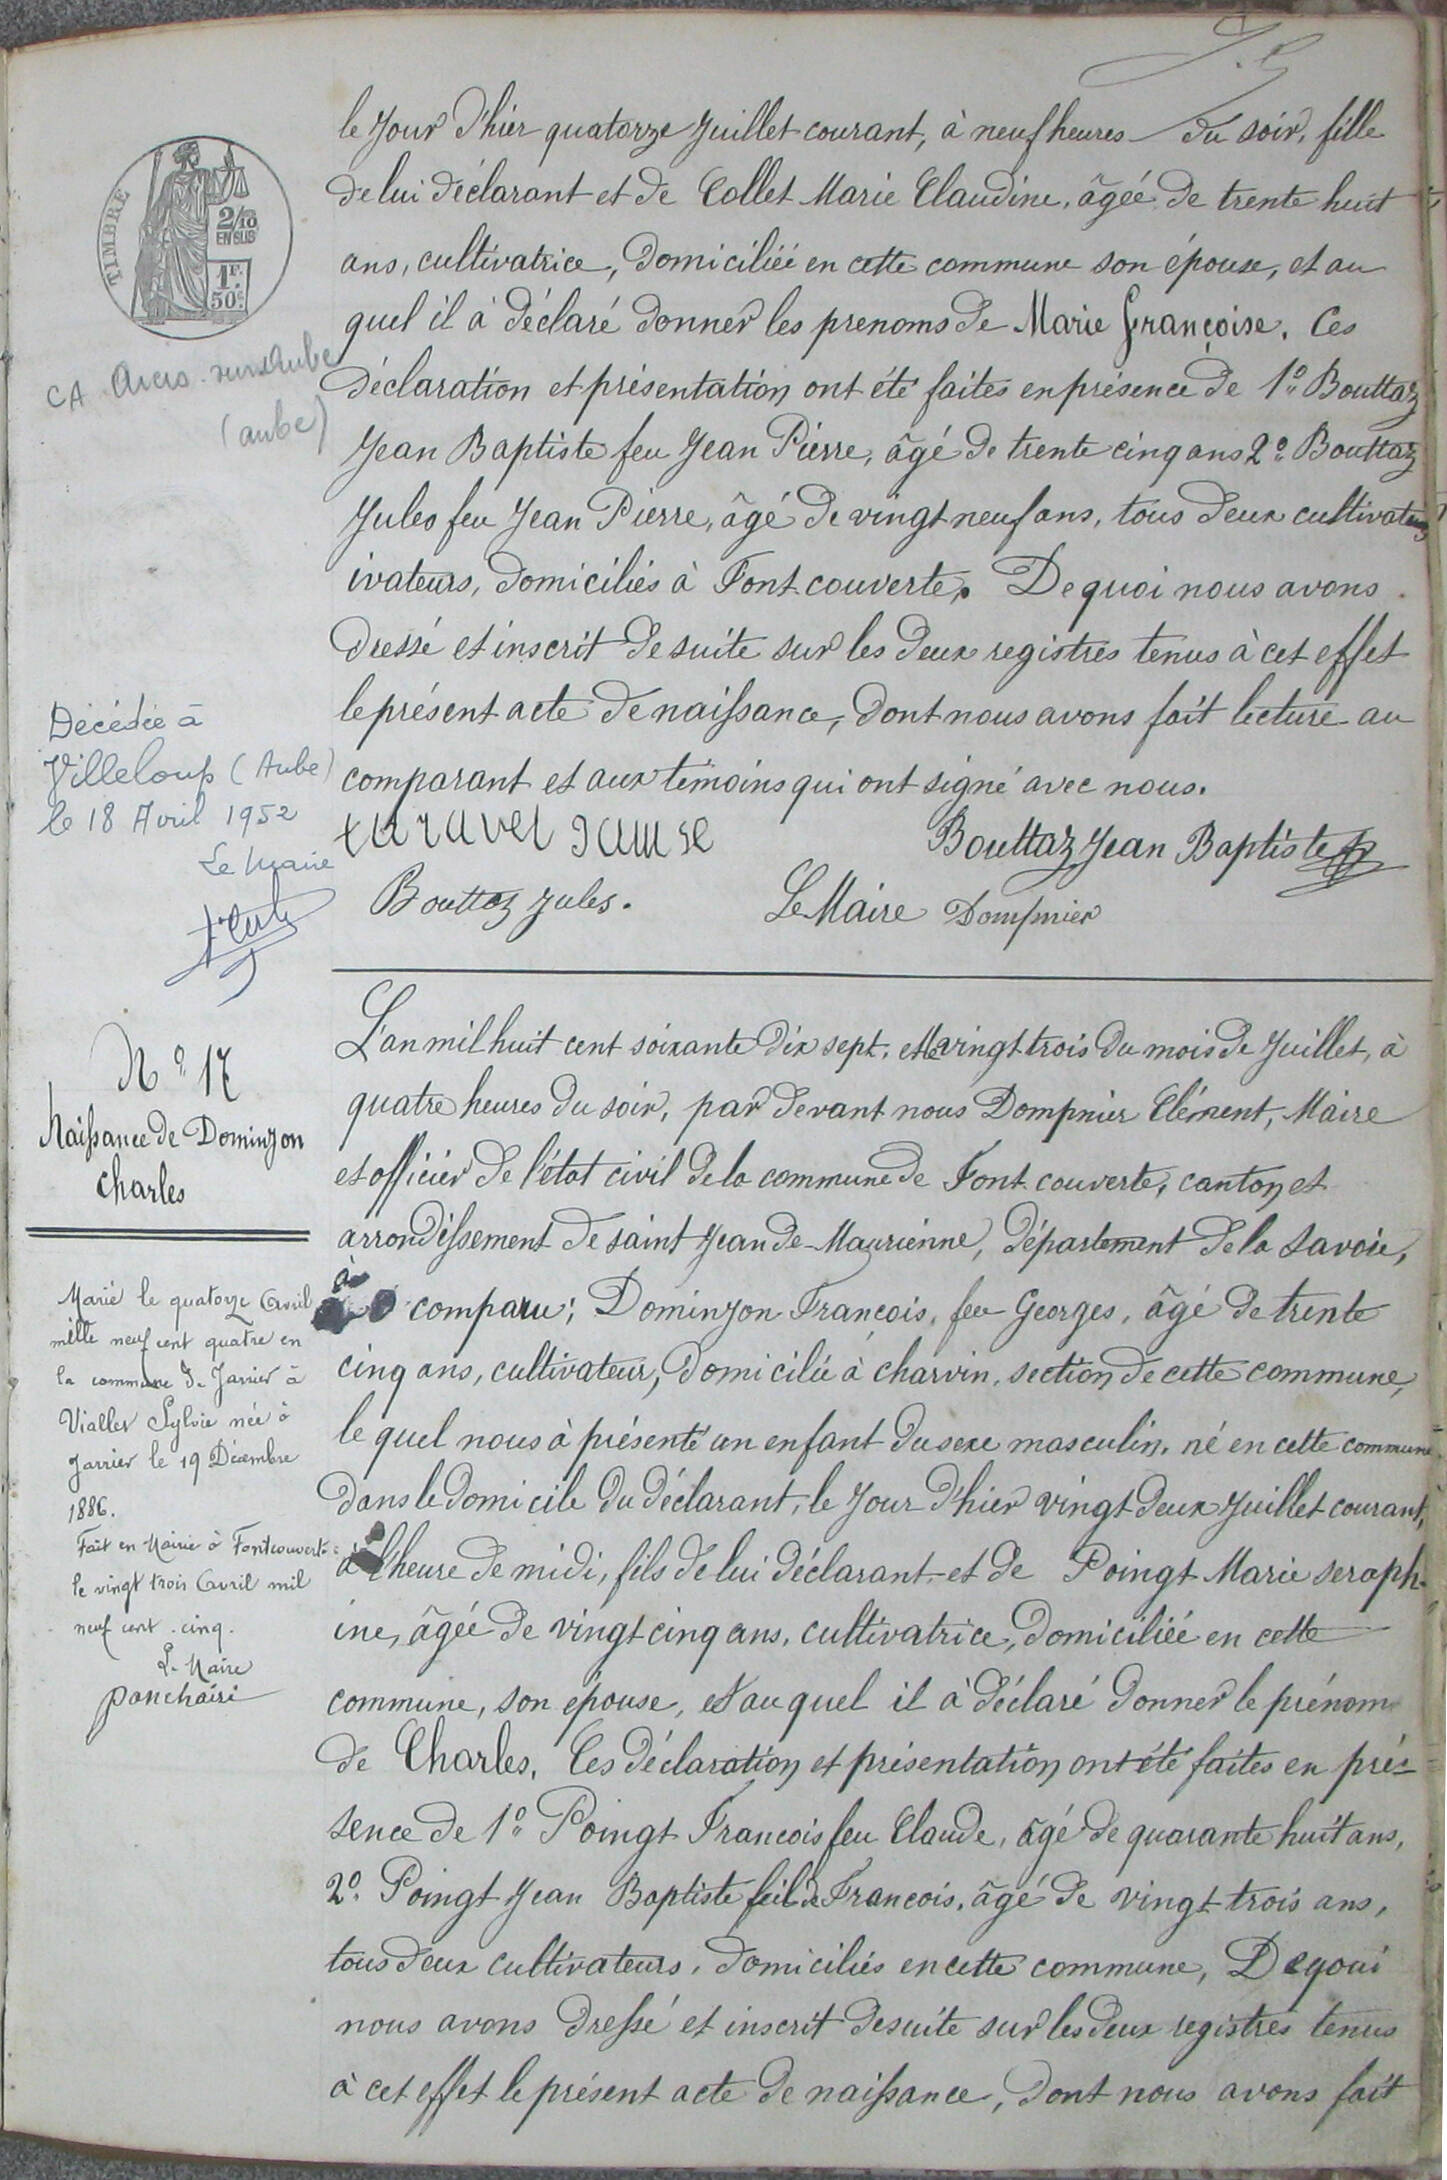 le Jour d'hier quatorze Juillet courant, à neuf heures du soir, fille
de lui déclarant et de Collet Marie Claudine, âgéé de trente huit
ans, cultivatrice, domiciliéé en cette commune son épouse, et au
quel il à déclaré donner les prenoms de Marie Françoise. Ces
déclaration et présentation ont été faites en présence de 1º Bouttaz
Jean Baptiste feu Jean Pierre, âgé de trente cinq ans 2º Bouttaz
Jules feu Jean Pierre, âgé de vingt neuf ans, tous deux cultivateurs
ivateurs, domiciliés à Fontcouverte. De quoi nous avons
dressé et inscrit de suite sur les deux registres tenus à cet effet
le présent acte de naissance, dont nous avons fait lecture au
comparant et aux témoins qui ont signé avec nous.
Bouttaz Jean Baptiste
Bouttaz Jules.
Le Maire Dompnier
TIMBRE
2/10
EN SUS
1F.
50c.
CA Arcis sur Aube
(aube)
Décédée à
Villeloup (Aube)
le 18 Avril 1952
Le Maire
Nº 17
Naissance de Dominjon
Charles
L'an mil huit cent soixante dix sept, et le vingt trois du mois de Juillet, à
quatre heures du soir, par devant nous Dompnier Clément, Maire
et officier de l'état civil de la commune de Fontcouverte, canton et
arrondissement de saint Jean de Maurienne, département de la Savoie,
à comparu; Dominjon François, feu Georges, âgé de trente
cinq ans, cultivateur, domicilié à charvin, section de cette commune,
le quel nous à présenté un enfant du sexe masculin, né en cette commune
dans le domicile du déclarant, le Jour d'hier vingt deux Juillet courant,
à l'heure de midi, fils de lui déclarant et de Poingt Marie seraph-
ine, âgéé de vingt cinq ans, cultivatrice, domiciliéé en cette
commune, son épouse, et au quel il à déclaré donner le prénom
de Charles. Ces déclaration et présentation ont été faites en pré-
sence de 1º Poingt Francois feu Claude, âgé de quarante huit ans,
2º Poingt Jean Baptiste de Francois, âgé de vingt trois ans,
tous deux cultivateurs, domiciliés en cette commune, De qoui
nous avons dressé et inscrit de suite sur les deux registres tenus
à cet effet le présent acte de naissance, dont nous avons fait
Marié le quatorze Avril
mille neuf cent quatre en
la commune de Jarrier à
Viallet Sylvie née à
Jarrier le 19 Décembre
1886.
Fait en Mairie à Fontcouverte
le vingt trois Avril mil
neuf cent cinq.
Le Maire